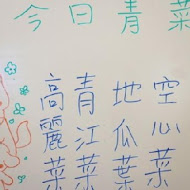 今日青菜
空心菜
地瓜葉
青江菜
高麗菜